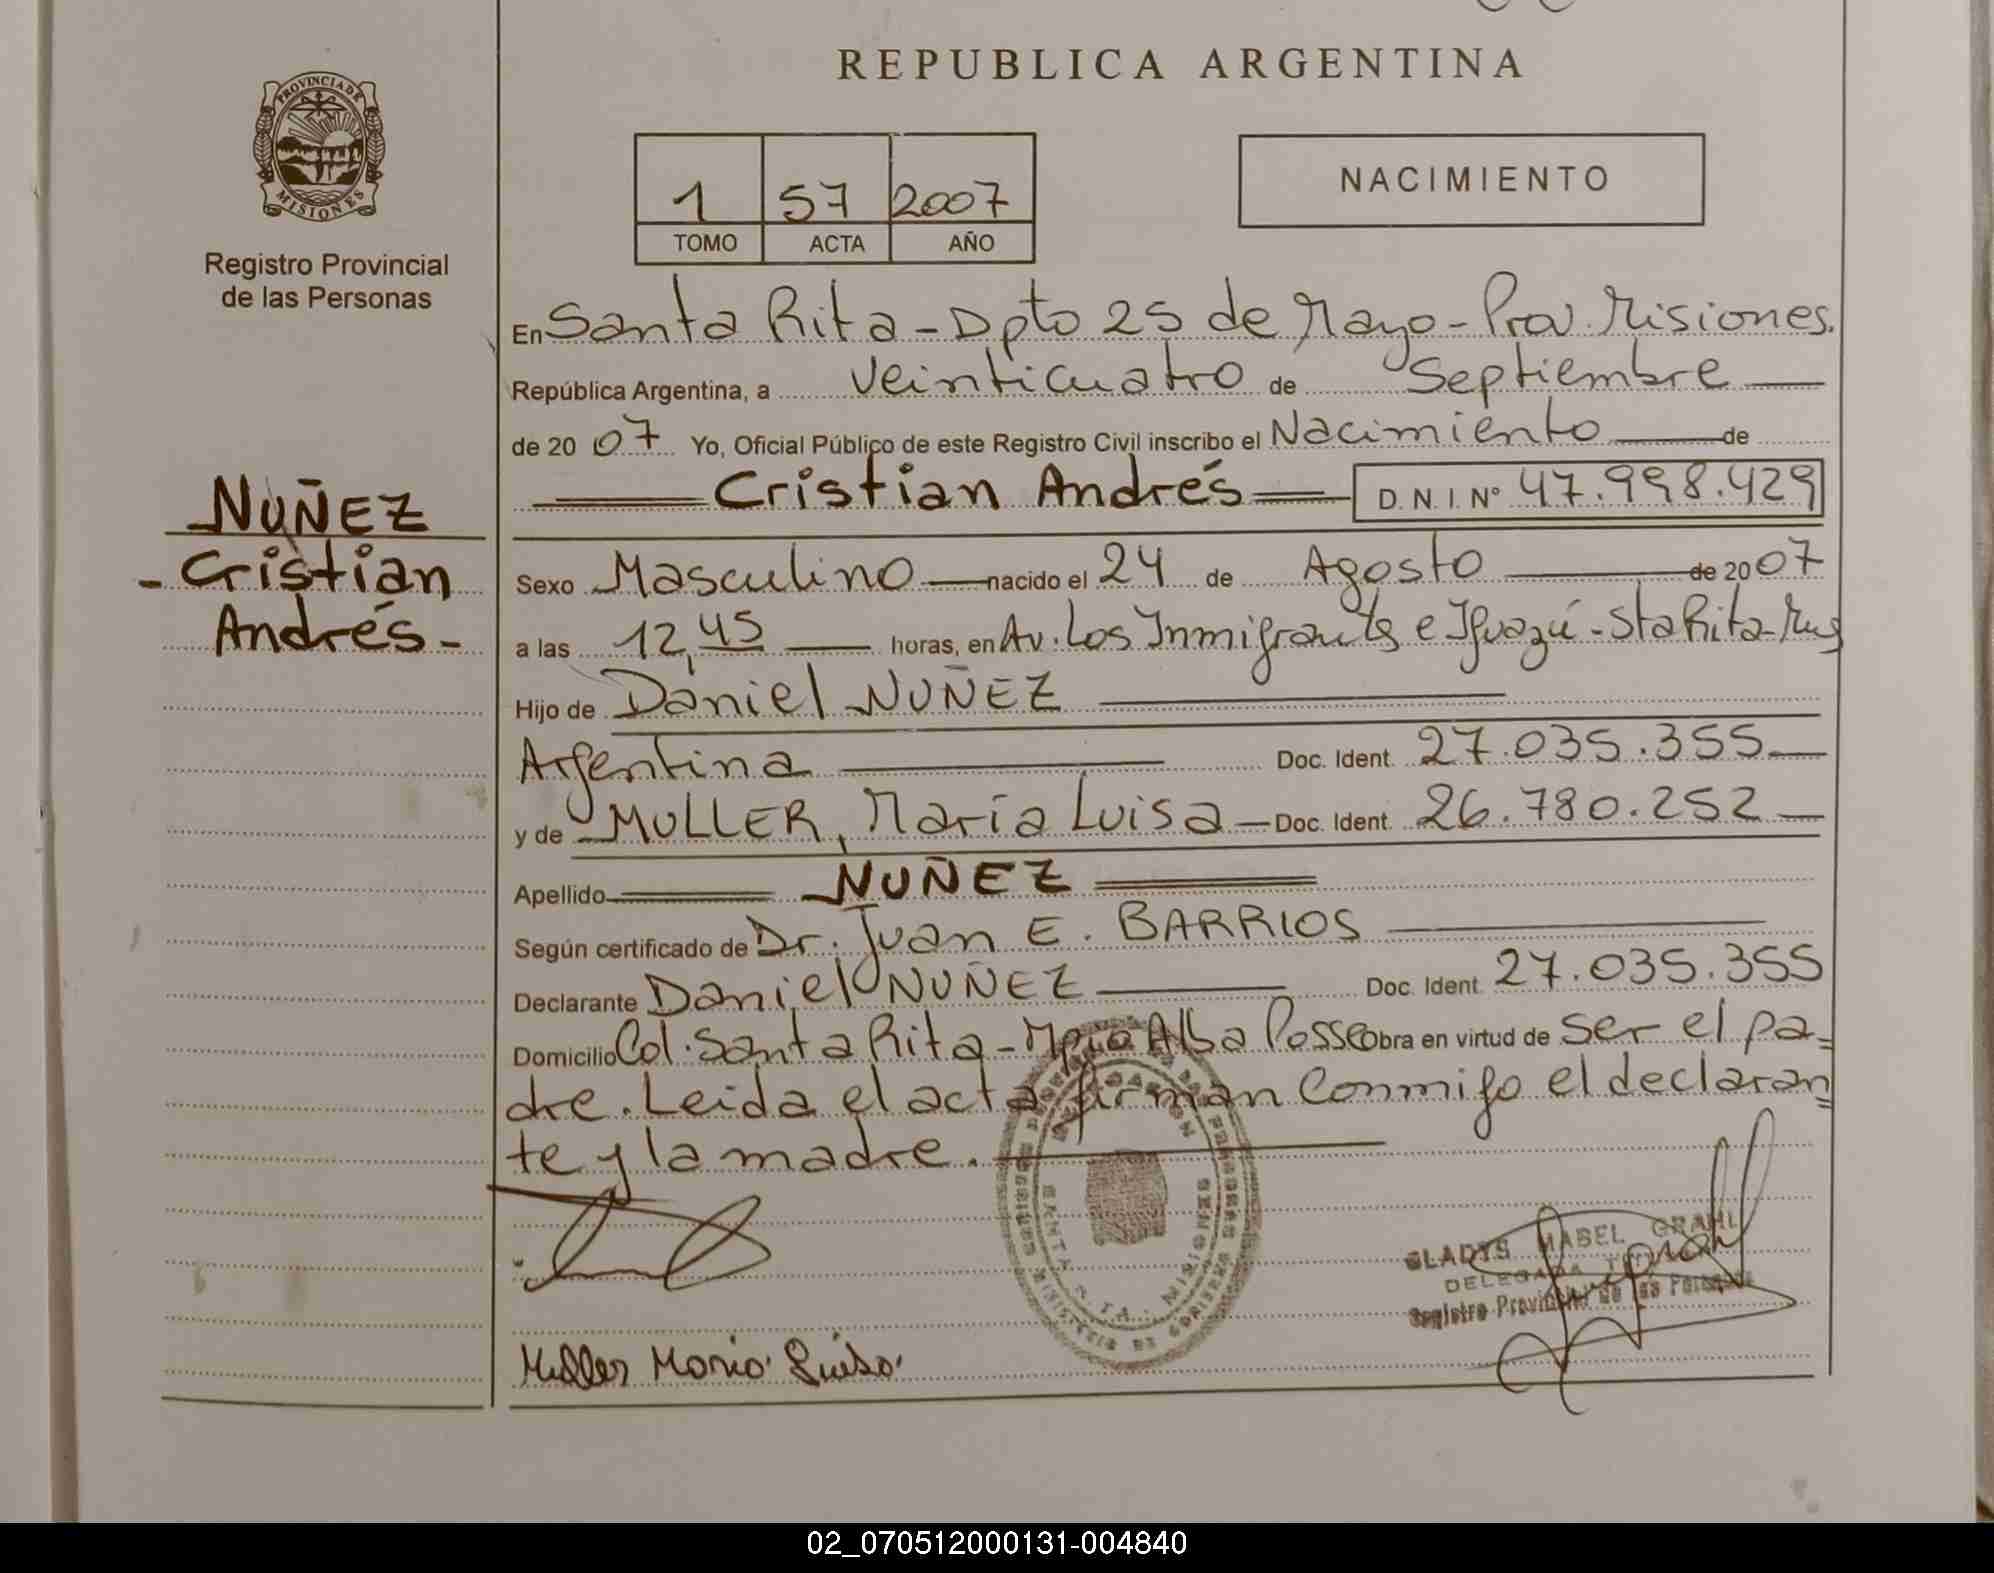 REPUBLICA ARGENTINA
PROVINCIA DE MISIONES
Registro Provincial
de las Personas
1 57 2007
TOMO ACTA AÑO
NACIMIENTO
NUÑEZ
- Cristian
Andrés -
En Santa Rita - Dpto 25 de Mayo - Prov. Misiones.
República Argentina, a veinticuatro de Septiembre
de 20 07 Yo, Oficial Público de este Registro Civil inscribo el Nacimiento de
Cristian Andrés D. N. I. Nº 47.998.429
Sexo Masculino nacido el 24 de Agosto de 20 07
a las 12,45 horas, en Av. Los Inmigrantes e Iguazú - Sta Rita - Mns
Hijo de Daniel NUÑEZ
Argentina Doc. Ident. 27.035.355
y de MULLER, María Luisa - Doc. Ident. 26.780.252
Apellido NUÑEZ
Según certificado de Dr. Juan E. BARRIOS
Declarante Daniel NUÑEZ Doc. Ident. 27.035.355
Domicilio Col. Santa Rita - Mpio Alba Posse Obra en virtud de ser el pa=
dre. Leida el acta firman conmigo el declaran=
te y la madre.
GLADYS MABEL GRAHL
DELEGADA
Registro Provincial de las Personas
Muller Maria Luisa
SANTA RITA - MISIONES
02_070512000131-004840